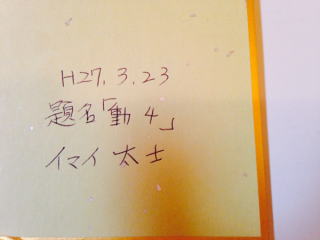 H27.3.23
題名「動 4」
イマイ 太士